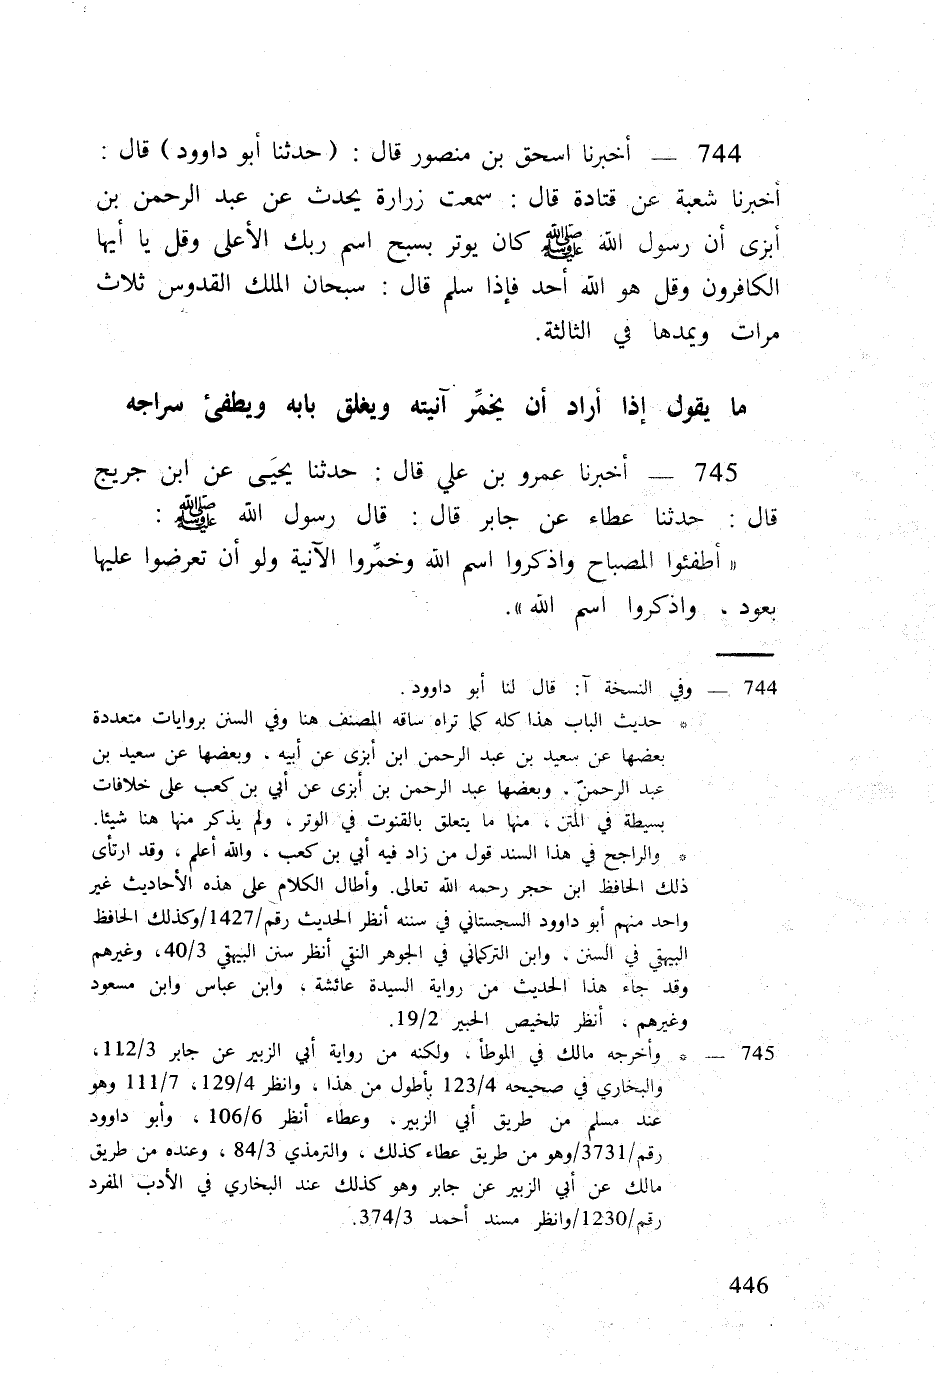 744 — أخبرنا اسحق بن منصور قال : ( حدثنا أبو داوود ) قال :
أخبرنا شعبة عن قتادة قال : سمعت زرارة يحدث عن عبد الرحمن بن
أبزى أن رسول الله ﷺ كان يوتر بسبح اسم ربك الأعلى وقل يا أيها
الكافرون وقل هو الله أحد فإذا سلم قال : سبحان الملك القدوس ثلاث
مرات ويمدها في الثالثة.
ما يقول إذا أراد أن يخمِّر آنيته ويغلق بابه ويطفئ سراجه
745 — أخبرنا عمرو بن علي قال : حدثنا يحيَى عن ابن جريج
قال : حدثنا عطاء عن جابر قال : قال رسول الله ﷺ :
« أطفئوا المصباح واذكروا اسم الله وخمِّروا الآنية ولو أن تعرضوا عليها
بعود ، واذكروا اسم الله ».
744 — وفي النسخة آ: قال لنا أبو داوود .
* حديث الباب هذا كله كما تراه ساقه المصنف هنا وفي السنن بروايات متعددة
بعضها عن سعيد بن عبد الرحمن ابن أبزى عن أبيه ، وبعضها عن سعيد بن
عبد الرحمن ، وبعضها عبد الرحمن بن أبزى عن أبي بن كعب على خلافات
بسيطة في المتن ، منها ما يتعلق بالقنوت في الوتر ، ولم يذكر منها هنا شيئا.
* والراجح في هذا السند قول من زاد فيه أبي بن كعب ، والله أعلم ، وقد ارتأى
ذلك الحافظ ابن حجر رحمه الله تعالى. وأطال الكلام على هذه الأحاديث غير
واحد منهم أبو داوود السجستاني في سننه أنظر الحديث رقم/1427/وكذلك الحافظ
البيهقي في السنن ، وابن التركماني في الجوهر النقي أنظر سنن البيهقي 40/3، وغيرهم
وقد جاء هذا الحديث من رواية السيدة عائشة ، وابن عباس وابن مسعود
وغيرهم ، أنظر تلخيص الحبير 19/2.
745 — * وأخرجه مالك في الموطأ ، ولكنه من رواية أبي الزبير عن جابر 112/3،
والبخاري في صحيحه 123/4 بأطول من هذا ، وانظر 129/4، 111/7 وهو
عند مسلم من طريق أبي الزبير، وعطاء أنظر 106/6 ، وأبو داوود
رقم/3731/وهو من طريق عطاء كذلك ، والترمذي 84/3 ، وعنده من طريق
مالك عن أبي الزبير عن جابر وهو كذلك عند البخاري في الأدب المفرد
رقم/1230/وانظر مسند أحمد 374/3.
446